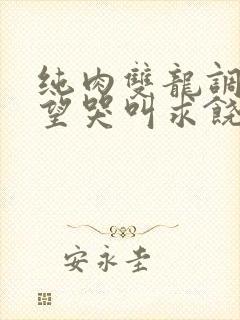 純肉雙龍調
望哭叫求饒
安永圭